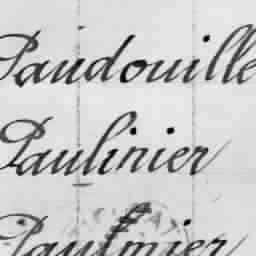 Paudouille
Paulinier
Paulmier